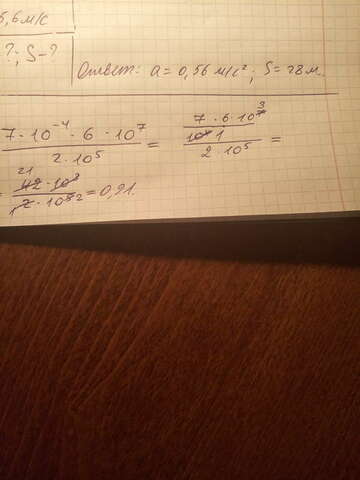 5,6 м/с
?; S-?
Ответ: a = 0,56 м/с²; S = 28 м.
7 · 10⁻⁴ · 6 · 10⁷ / 2 · 10⁵ = 7 · 6 · 10⁷ 3 / 10⁴ 1 / 2 · 10⁵ =
= 21 42 · 10³ / 1 2 · 10⁵ 2 = 0,21.